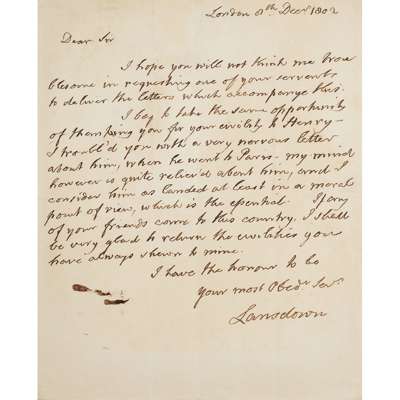 London 8th Decr 1802
Dear Sir
I hope you will not think me trou
blesome in requesting one of your servants
to deliver the letters which accompany this.
I beg to take the same opportunity
of thanking you for your civility to Henry—
I troubl'd you with a very nervous letter
about him, when he went to Paris—my mind
however is quite reliev'd about him, and I
consider him as landed at least in a moral
point of view, which is the essential. If any
of your friends come to this country, I shall
be very glad to return the civilities you
have always shewn to mine.
I have the honour to be
Your most Obedt Servt
Lansdown